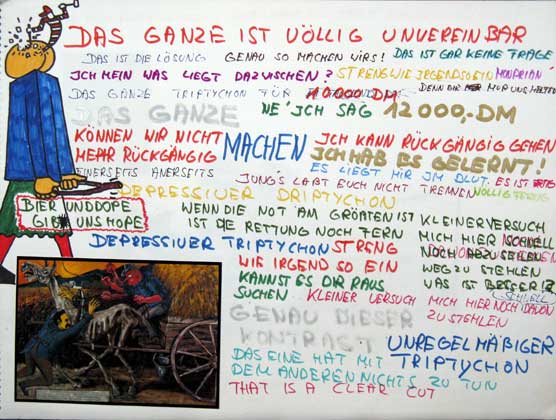 DAS GANZE IST VÖLLIG UNVEREINBAR
DAS IST DIE LÖSUNG GENAU SO MACHEN WIRS! DAS IST GAR KEINE FRAGE
ICH MEIN WAS LIEGT DAZWISCHEN? STRENG WIE IRGEND SO EIN MONDRIAN
DAS GANZE TRIPTYCHON FÜR 10000 DM
DAS GANZE NE' ICH SAG 12000,-DM
KÖNNEN WIR NICHT MACHEN ICH KANN RÜCKGÄNGIG GEHEN
MEHR RÜCKGÄNGIG ICH HAB ES GELERNT!
EINERSEITS ANERSEITS ES LIEGT MIR IM BLUT. ES IST
JUNG'S LABT EUCH NICHT TRENNEN VÖLLIG FERTIG
DEPRESSIVER DRIPTYCHON
BIER UND DOPE
GIBT UNS HOPE
WENN DIE NOT AM GRÖßTEN IST KLEINER VERSUCH
IST DIE RETTUNG NOCH FERN MICH HIER SCHNELL
DEPRESSIVER TRIPTYCHON STRENG NOCH
WIE IRGEND SO EIN WEG ZU STEHLEN
KANNST ES DIR RAUS WAS IST BESSER!?
SUCHEN KLEINER VERSUCH MICH HIER NOCH DAVON
ZU STEHLEN
GENAU DIESER
KONTRAST UNREGELMÄßIGER
TRIPTYCHON
DAS EINE HAT MIT
DEM ANDEREN NICHTS ZU TUN
THAT IS A CLEAR CUT